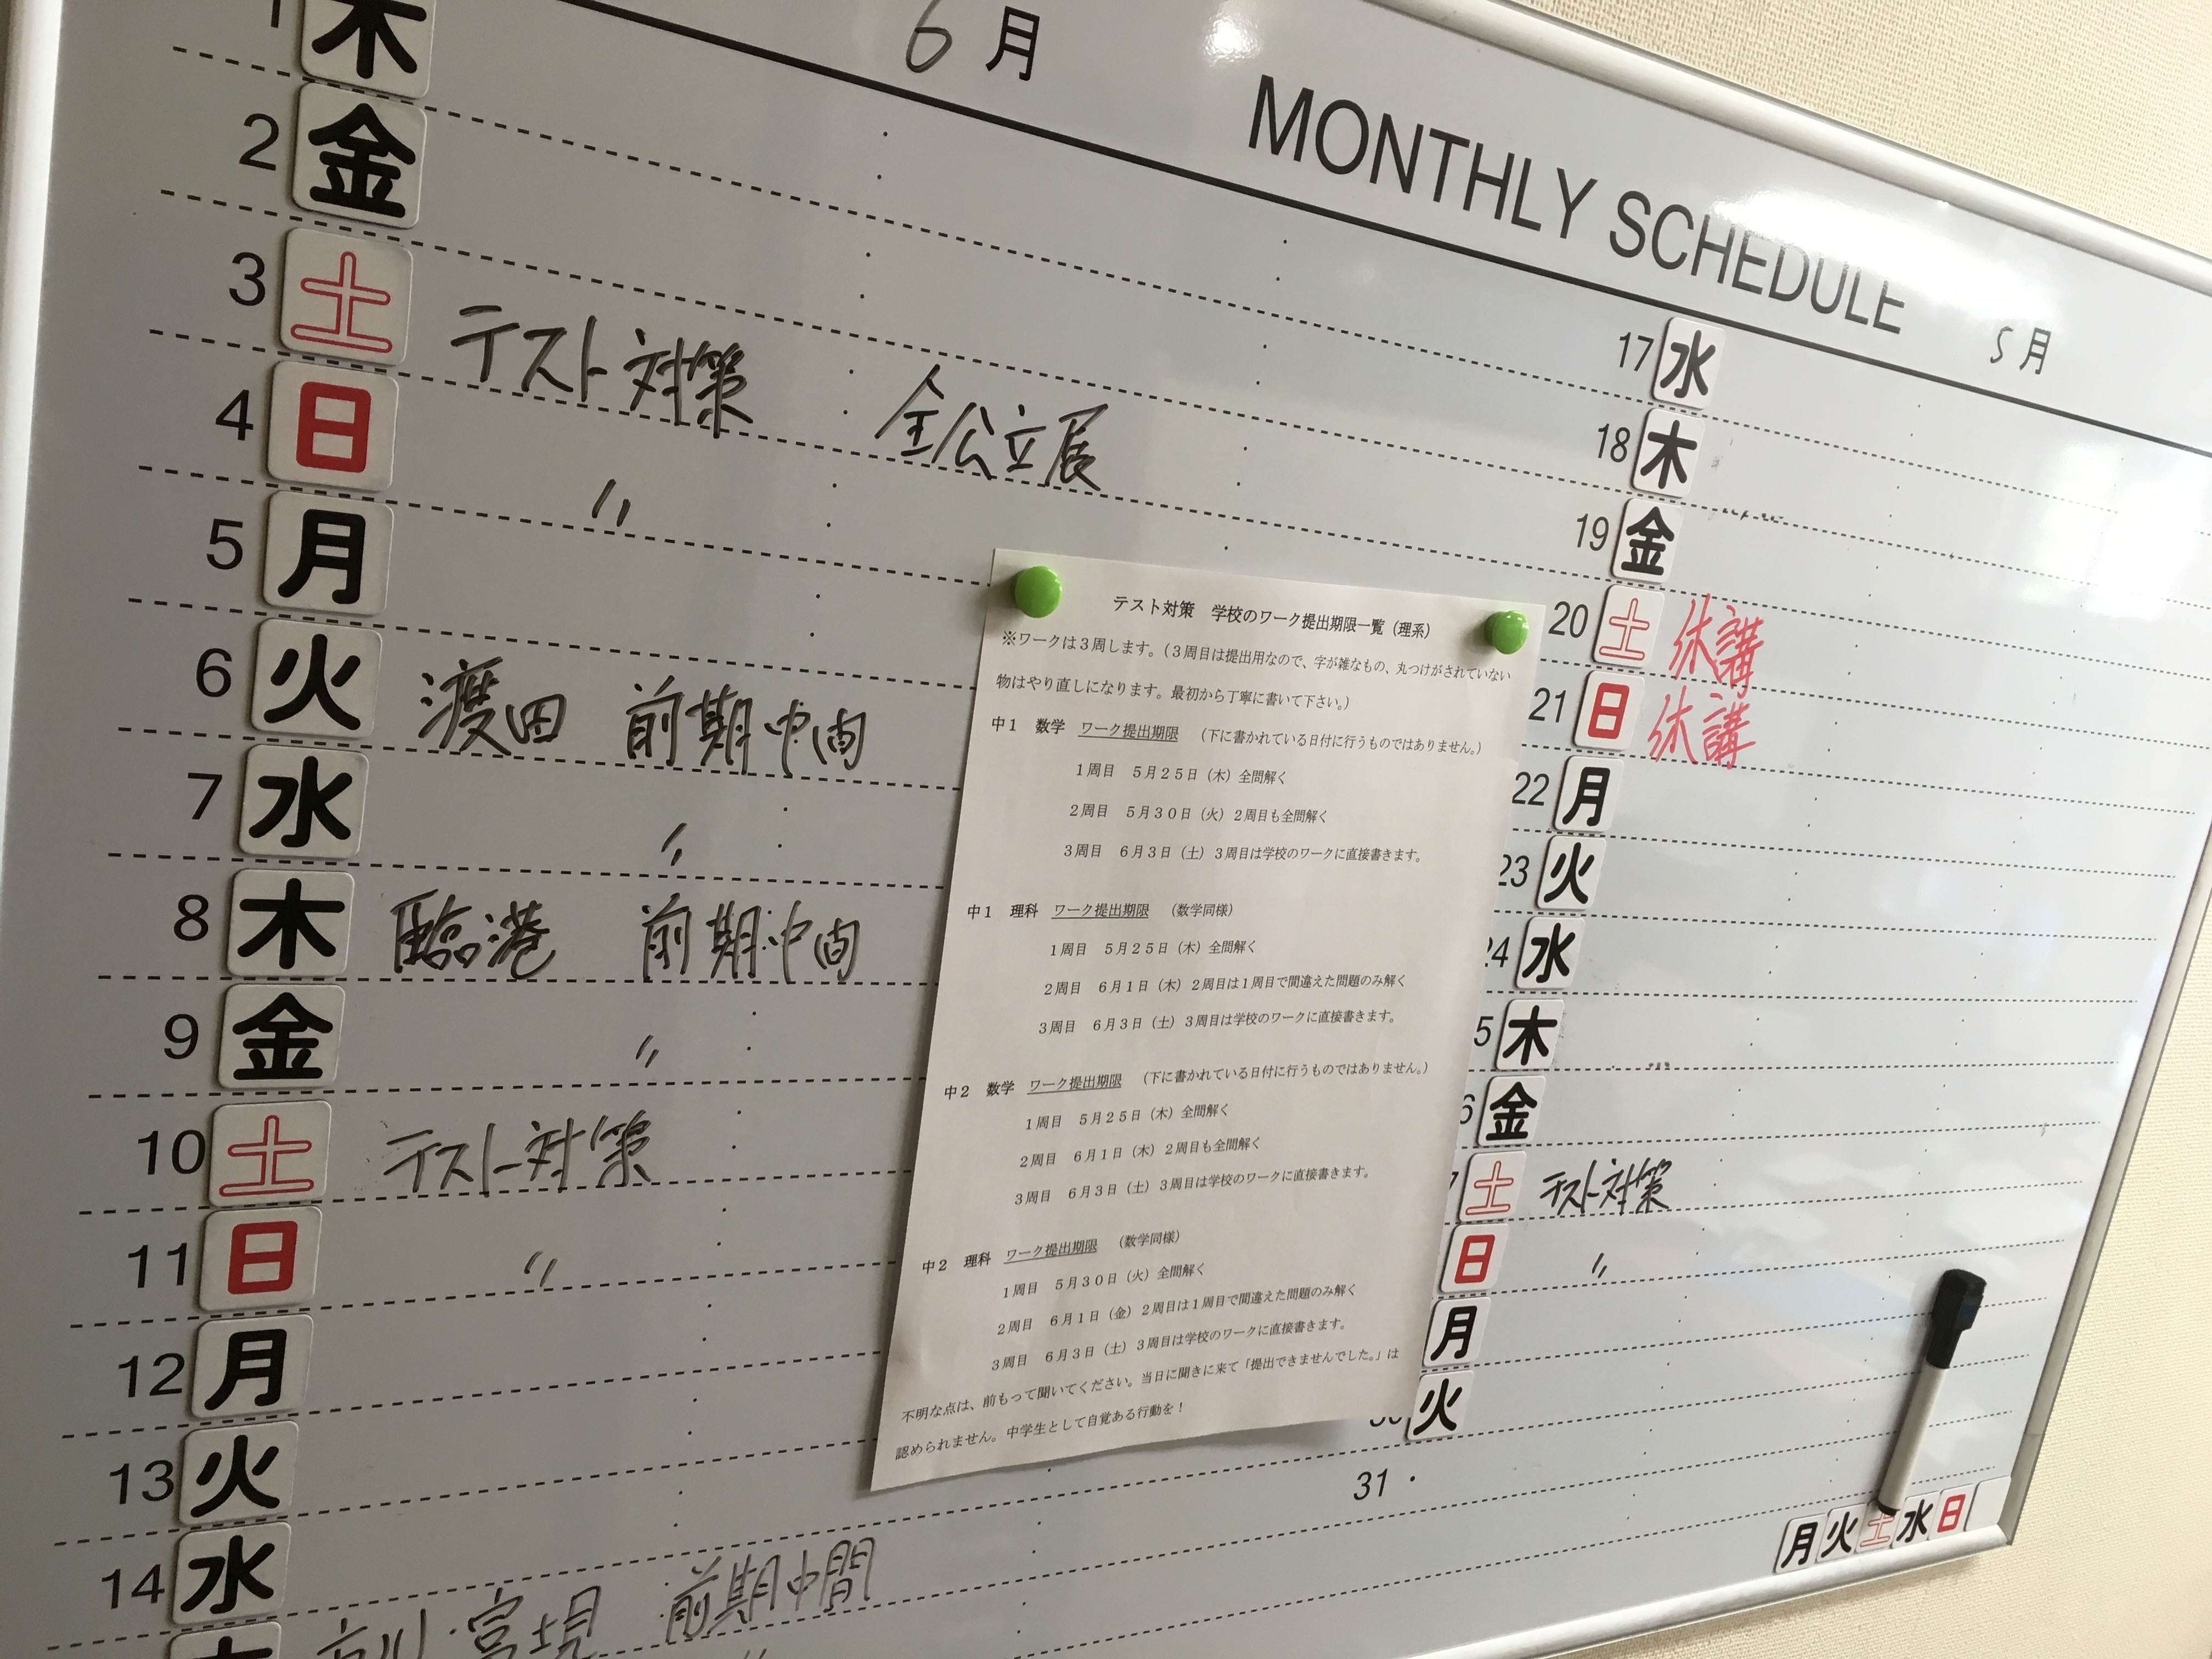 6月
MONTHLY SCHEDULE
5月
1 木
2 金
3 土 テスト対策 全公立展
4 日 〃
5 月
6 火 渡田 前期中間
7 水 〃
8 木 臨港 前期中間
9 金 〃
10 土 テスト対策
11 日 〃
12 月
13 火
14 水
木 前期中間
〃
テスト対策 学校のワーク提出期限一覧（理系）
※ワークは３周します。（３周目は提出用なので、字が雑なもの、丸つけがされていない
物はやり直しになります。最初から丁寧に書いて下さい。）
中１ 数学 ワーク提出期限 （下に書かれている日付に行うものではありません。）
１周目 ５月２５日（木）全問解く
２周目 ５月３０日（火）２周目も全問解く
３周目 ６月３日（土）３周目は学校のワークに直接書きます。
中１ 理科 ワーク提出期限 （数学同様）
１周目 ５月２５日（木）全問解く
２周目 ６月１日（木）２周目は１周目で間違えた問題のみ解く
３周目 ６月３日（土）３周目は学校のワークに直接書きます。
中２ 数学 ワーク提出期限 （下に書かれている日付に行うものではありません。）
１周目 ５月２５日（木）全問解く
２周目 ６月１日（木）２周目も全問解く
３周目 ６月３日（土）３周目は学校のワークに直接書きます。
中２ 理科 ワーク提出期限 （数学同様）
１周目 ５月３０日（火）全問解く
２周目 ６月１日（金）２周目は１周目で間違えた問題のみ解く
３周目 ６月３日（土）３周目は学校のワークに直接書きます。
不明な点は、前もって聞いてください。当日に聞きに来て「提出できませんでした。」は
認められません。中学生として自覚ある行動を！
17 水
18 木
19 金
20 土 休講
21 日 休講
22 月
23 火
24 水
5 木
6 金
7 土 テスト対策
日 〃
月
30 火
31
月 火 土 水 日